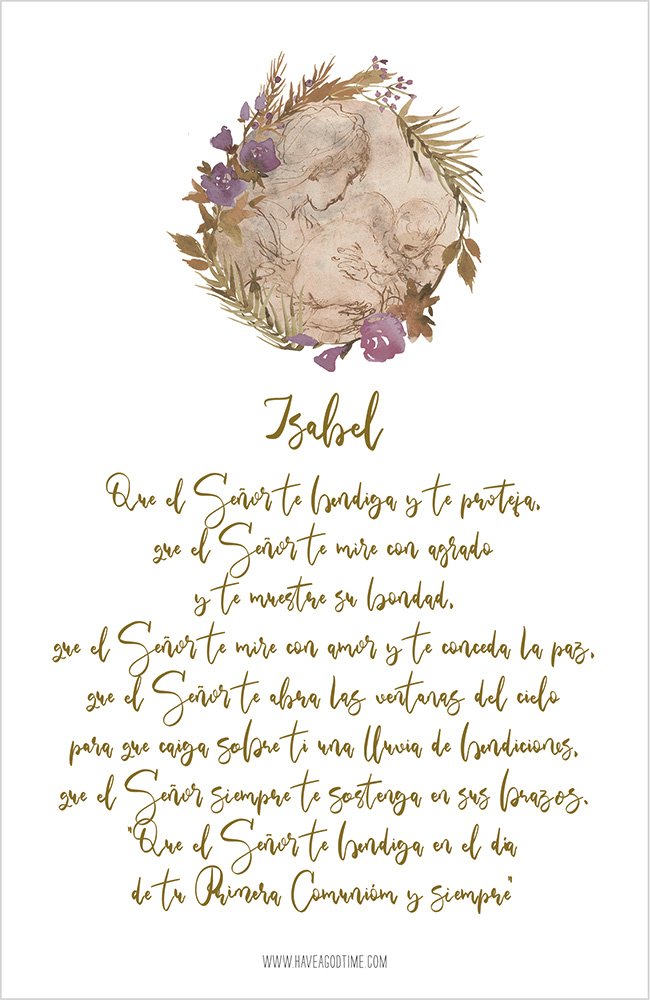 Isabel
Que el Señor te bendiga y te proteja,
que el Señor te mire con agrado
y te muestre su bondad,
que el Señor te mire con amor y te conceda la paz,
que el Señor te abra las ventanas del cielo
para que caiga sobre ti una lluvia de bendiciones,
que el Señor siempre te sostenga en sus brazos.
"Que el Señor te bendiga en el día
de tu Primera Comunióm y siempre"
WWW.HAVEAGODTIME.COM